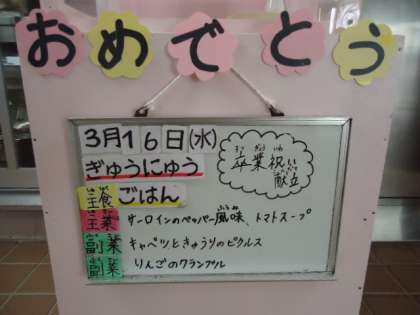 おめでとう
3月16日(水)
卒業祝い
献立
ぎゅうにゅう
主食 ごはん
主菜 サーロインのペッパー風味、トマトスープ
副菜 キャベツときゅうりのピクルス
副菜 りんごのクランブル